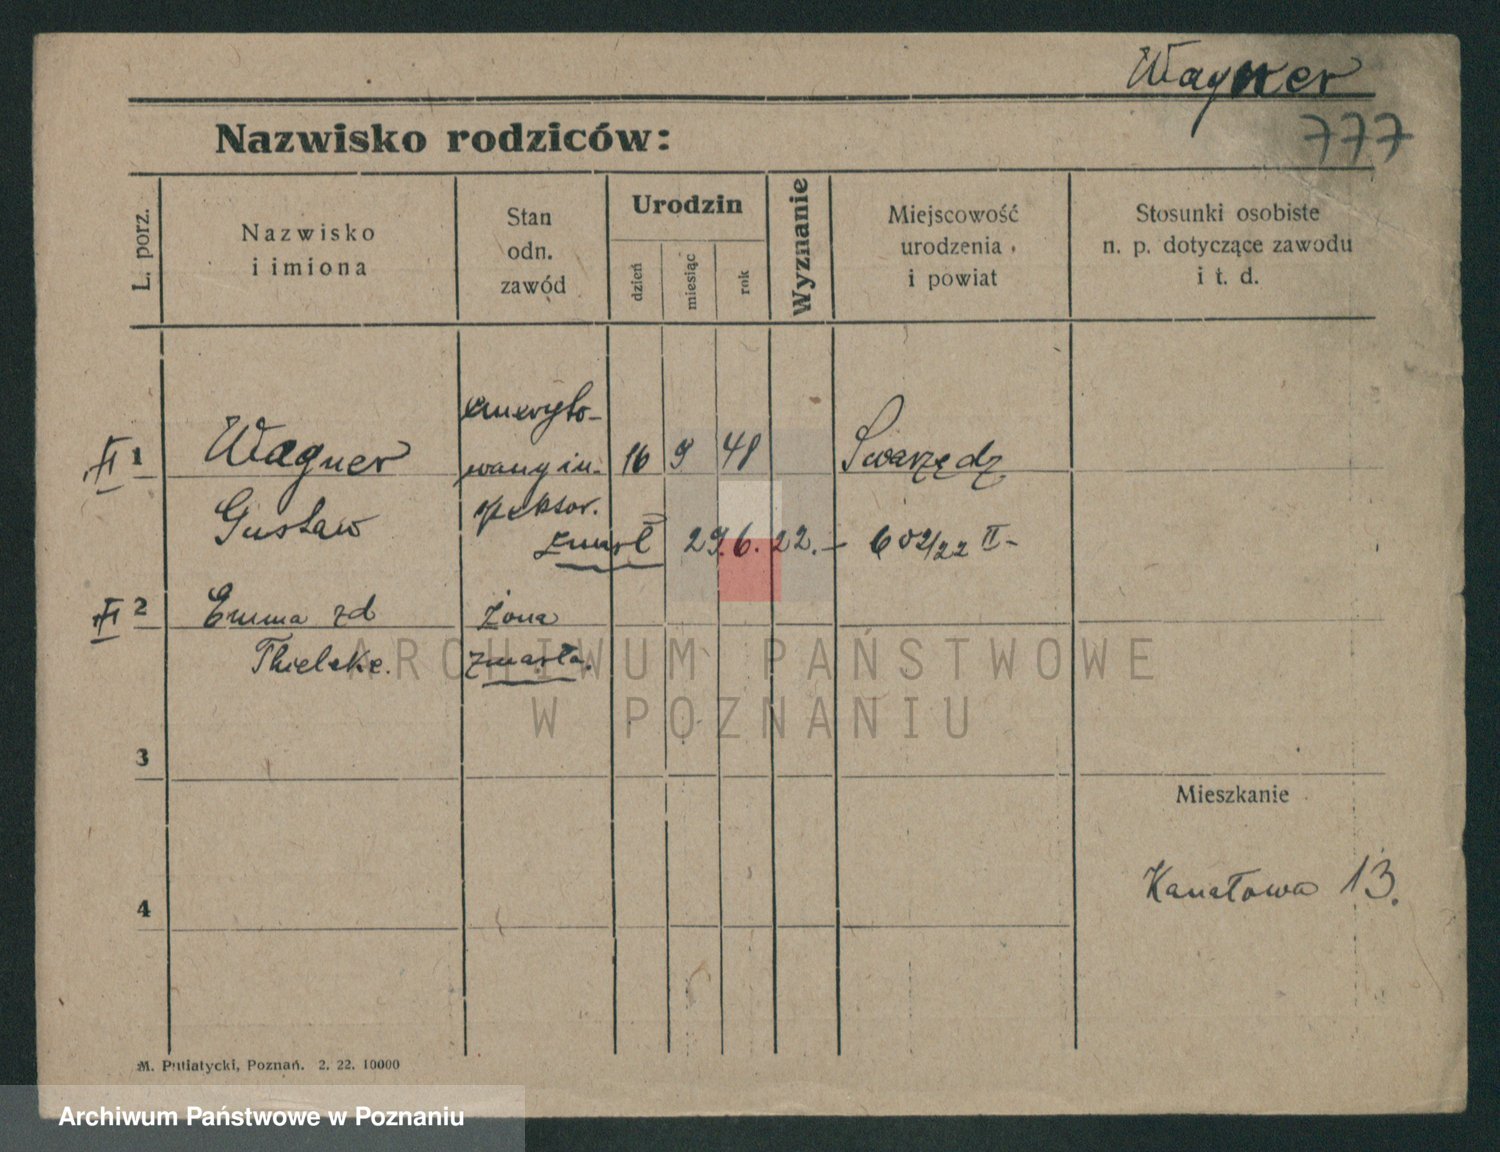 Wagner
777
Nazwisko rodziców:
L. porz.
Nazwisko
i imiona
Stan
odn.
zawód
Urodzin
dzień
miesiąc
rok
Wyznanie
Miejscowość
urodzenia
i powiat
Stosunki osobiste
n. p. dotyczące zawodu
i t. d.
1 Wagner
Gustaw
emeryto-
wany in-
spektor.
16 9 48
Swarzędz
zmarł 29.6.22.- 602/22 II-
2 Emma zd
Thielske.
żona
zmarła.
3
Mieszkanie
Kanałowa 13.
4
ARCHIWUM PAŃSTWOWE
W POZNANIU
M. Putiatycki, Poznań. 2. 22. 10000
Archiwum Państwowe w Poznaniu